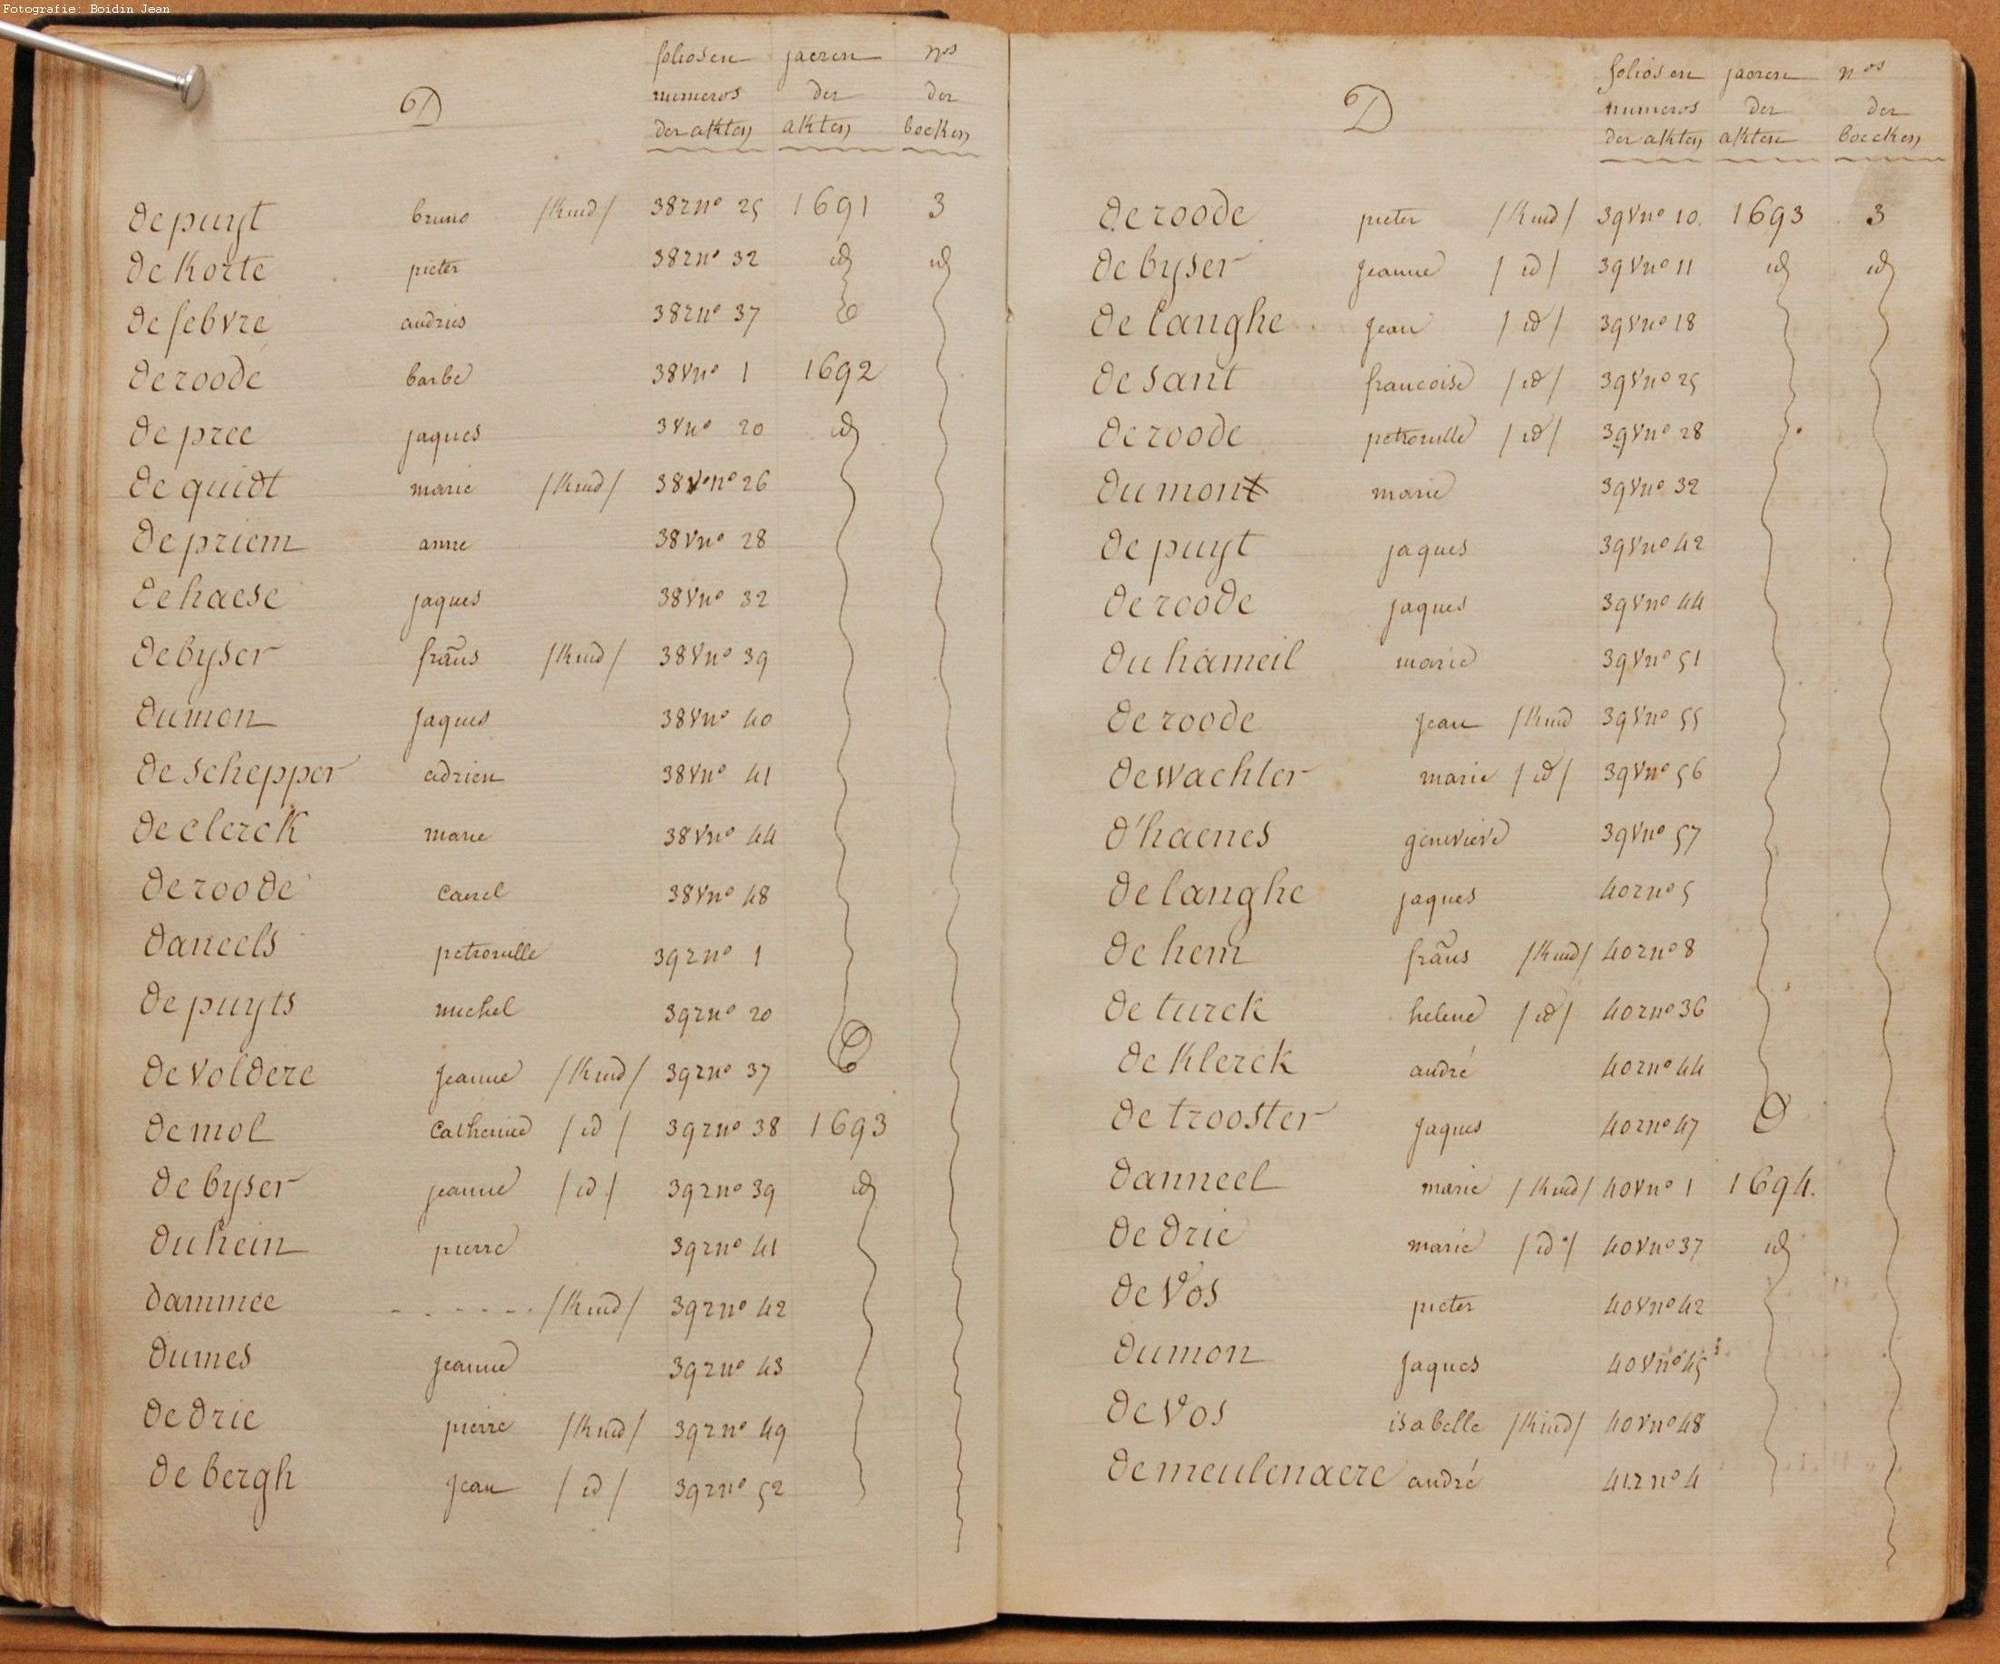 Fotografie: Boidin Jean
D
folios en jaeren nos
numeros der der
der akten akten boeken
de puyt bruno /Kind/ 38 r no 25 1691 3
de Korte pieter 38 r no 32 id id
de febvre andries 38 r no 37
de roode barbe 38 v no 1 1692
de pree jaques 3 v no 20 id
de quidt marie /Kind/ 38 v no 26
de priem anne 38 v no 28
de haese jaques 38 v no 32
de byser fraus /Kind/ 38 v no 39
dumon Jaques 38 v no 40
de schepper adrien 38 v no 41
de clerck marie 38 v no 44
de roode Carel 38 v no 48
daneels petronille 39 r no 1
de puyts michel 39 r no 20
de voldere Jeanne /Kind/ 39 r no 37
de mol Catherine /id/ 39 r no 38 1693
de byser jeanne /id/ 39 r no 39 id
du hein pierre 39 r no 41
dammee - - - - - - /Kind/ 39 r no 42
dumes jeanne 39 r no 43
de drie pierre /Kind/ 39 r no 49
de bergh Jean /id/ 39 r no 52
D
folios en jaoren nos
numeros der der
der akten akten boecken
de roode pieter /Kind/ 39 v no 10. 1693 3
de byser Jeanne /id/ 39 v no 11 id id
de langhe Jean /id/ 39 v no 18
de sant francoise /id/ 39 v no 25
de roode petronille /id/ 39 v no 28
du mont marie 39 v no 32
de puyt jaques 39 v no 42
de roode jaques 39 v no 44
du hameil marie 39 v no 51
de roode Jean /Kind 39 v no 55
de wachter marie /id/ 39 v no 56
d'haenes genevieve 39 v no 57
de langhe jaques 40 r no 5
de hem fraus /Kind/ 40 r no 8
de turck helene /id/ 40 r no 36
de Klerck andré 40 r no 44
de trooster Jaques 40 r no 47
danneel marie /Kind/ 40 v no 1 1694.
de drie marie /id/ 40 v no 37 id
de Vos pieter 40 v no 42
dumon Jaques 40 v no 45
de vos isabelle /Kind/ 40 v no 48
de meulenaere andré 41. r no 4